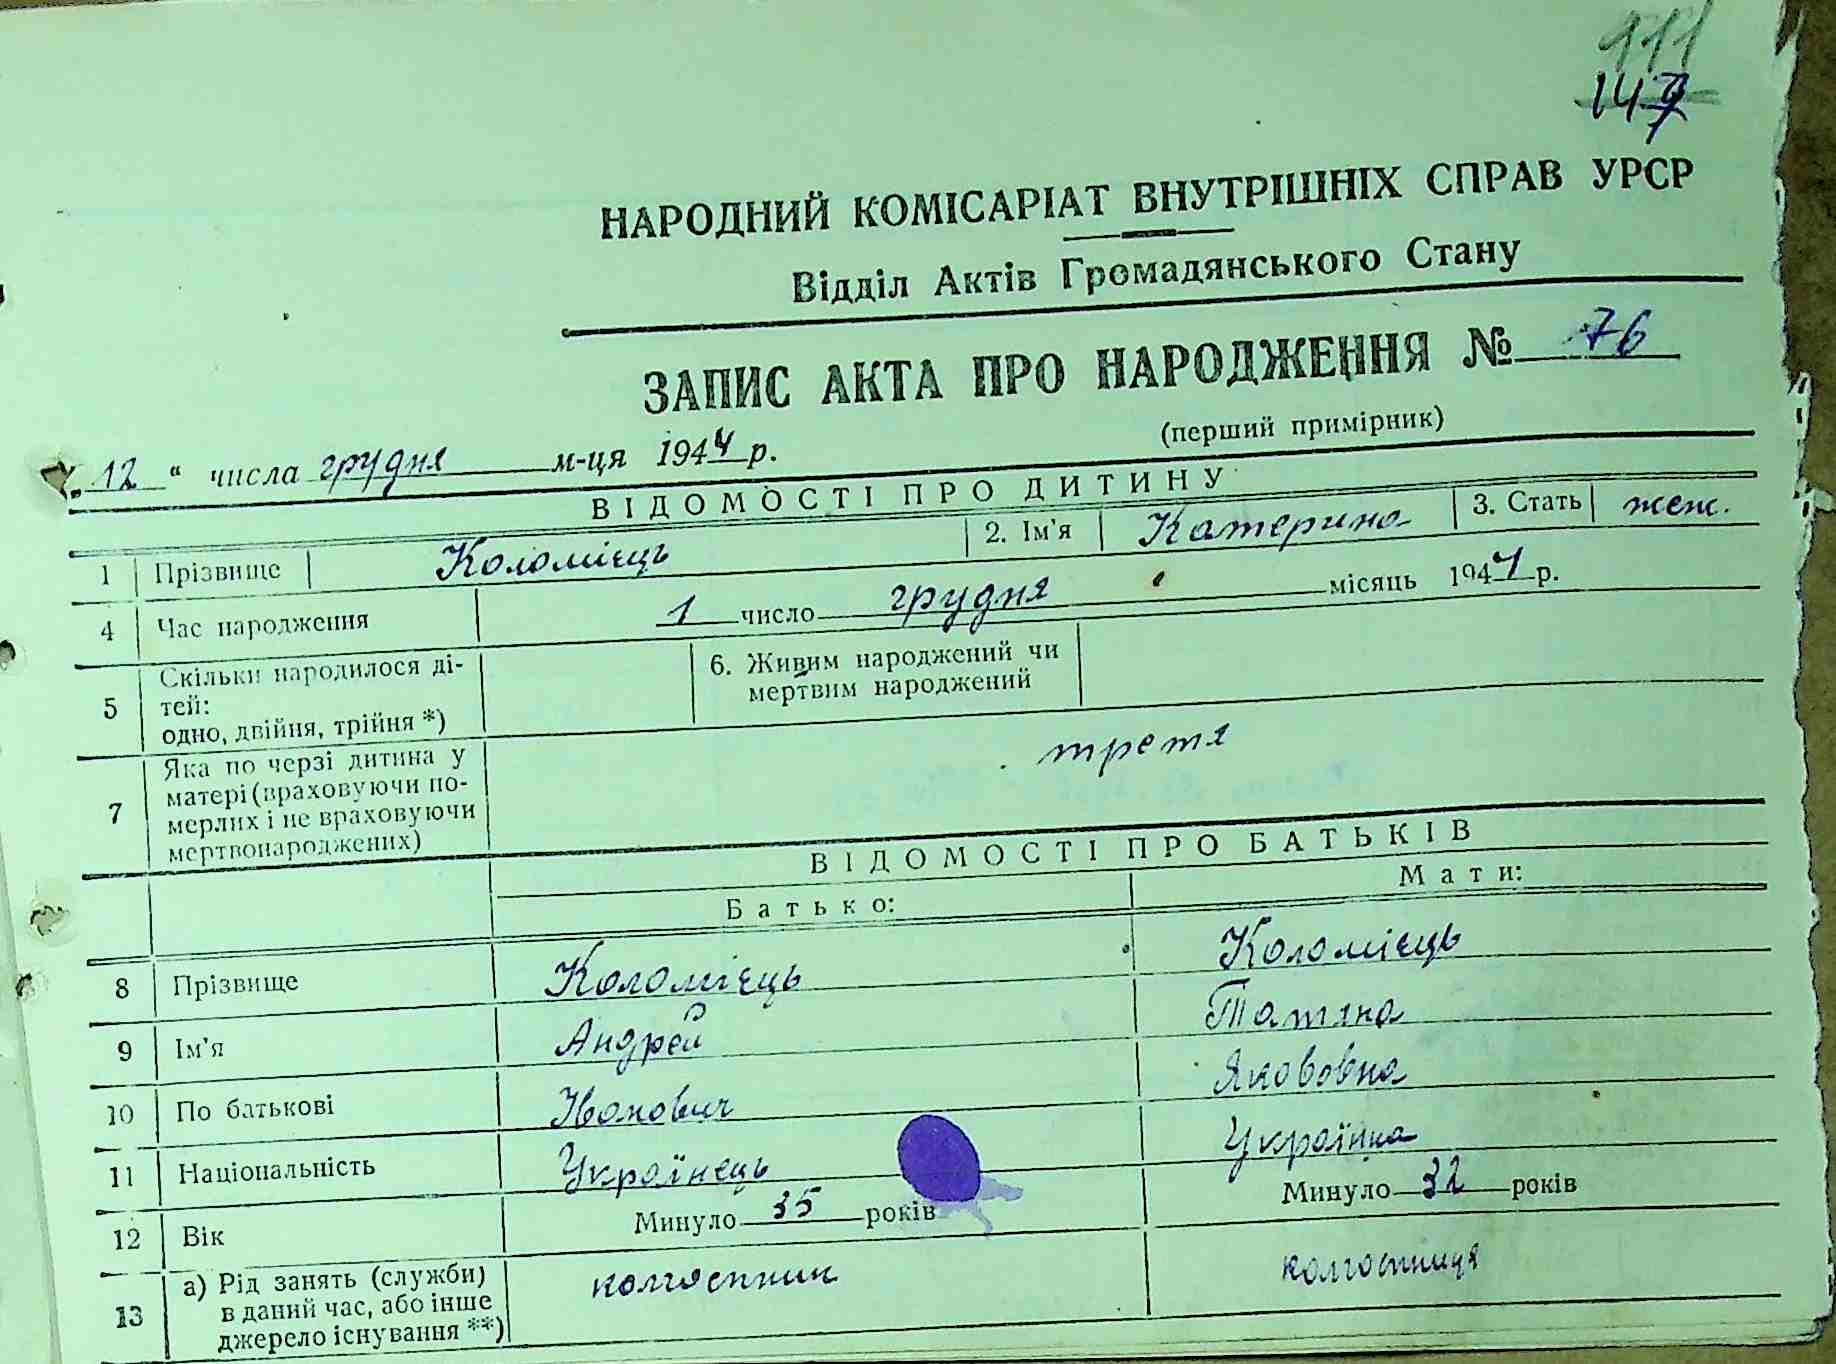 111
147
НАРОДНИЙ КОМІСАРІАТ ВНУТРІШНІХ СПРАВ УРСР
Відділ Актів Громадянського Стану
ЗАПИС АКТА ПРО НАРОДЖЕННЯ № 76
(перший примірник)
„12“ числа грудня м-ця 1944 р.
ВІДОМОСТІ ПРО ДИТИНУ
1 Прізвище Коломієць 2. Ім'я Катерина 3. Стать жен.
4 Час народження 1 число грудня місяць 1944 р.
5 Скільки народилося ді-
тей:
одно, двійня, трійня *)
6. Живим народжений чи
мертвим народжений
7 Яка по черзі дитина у
матері (враховуючи по-
мерлих і не враховуючи
мертвонароджених)
третя
ВІДОМОСТІ ПРО БАТЬКІВ
Батько: Мати:
8 Прізвище Коломієць Коломієць
9 Ім'я Андрей Татяна
10 По батькові Іванович Якововна
11 Національність Українець Українка
12 Вік Минуло 35 років Минуло 32 років
13 а) Рід занять (служби)
в даний час, або інше
джерело існування **)
колгоспник колгоспниця